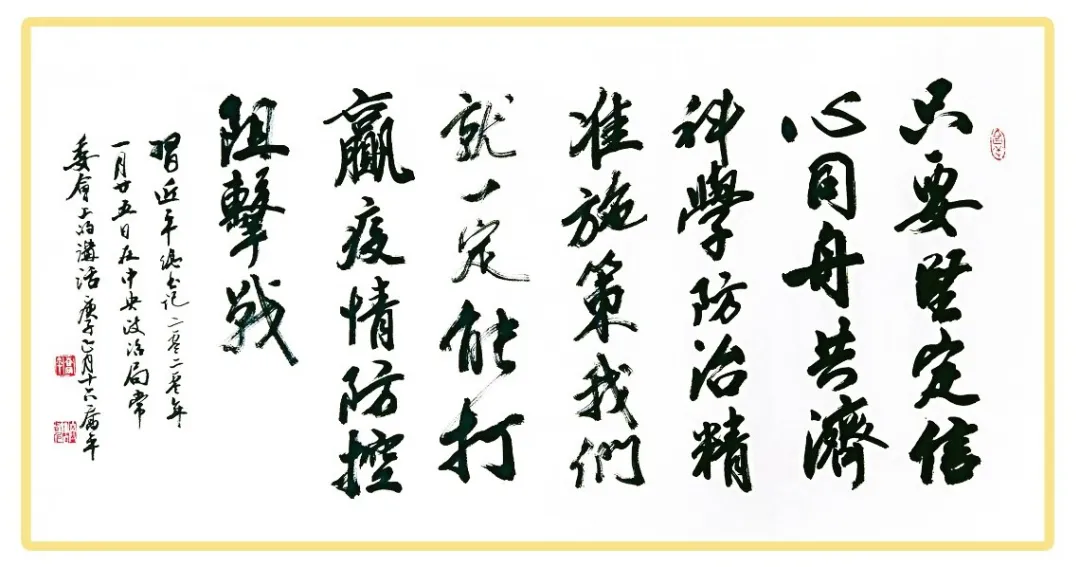 只要坚定信
心同舟共濟
科學防治精
准施策我們
就一定能打
贏疫情防控
阻擊战
習近平總书记二零二零年
一月廿五日在中央政治局常
委會上的講话庚子正月十六